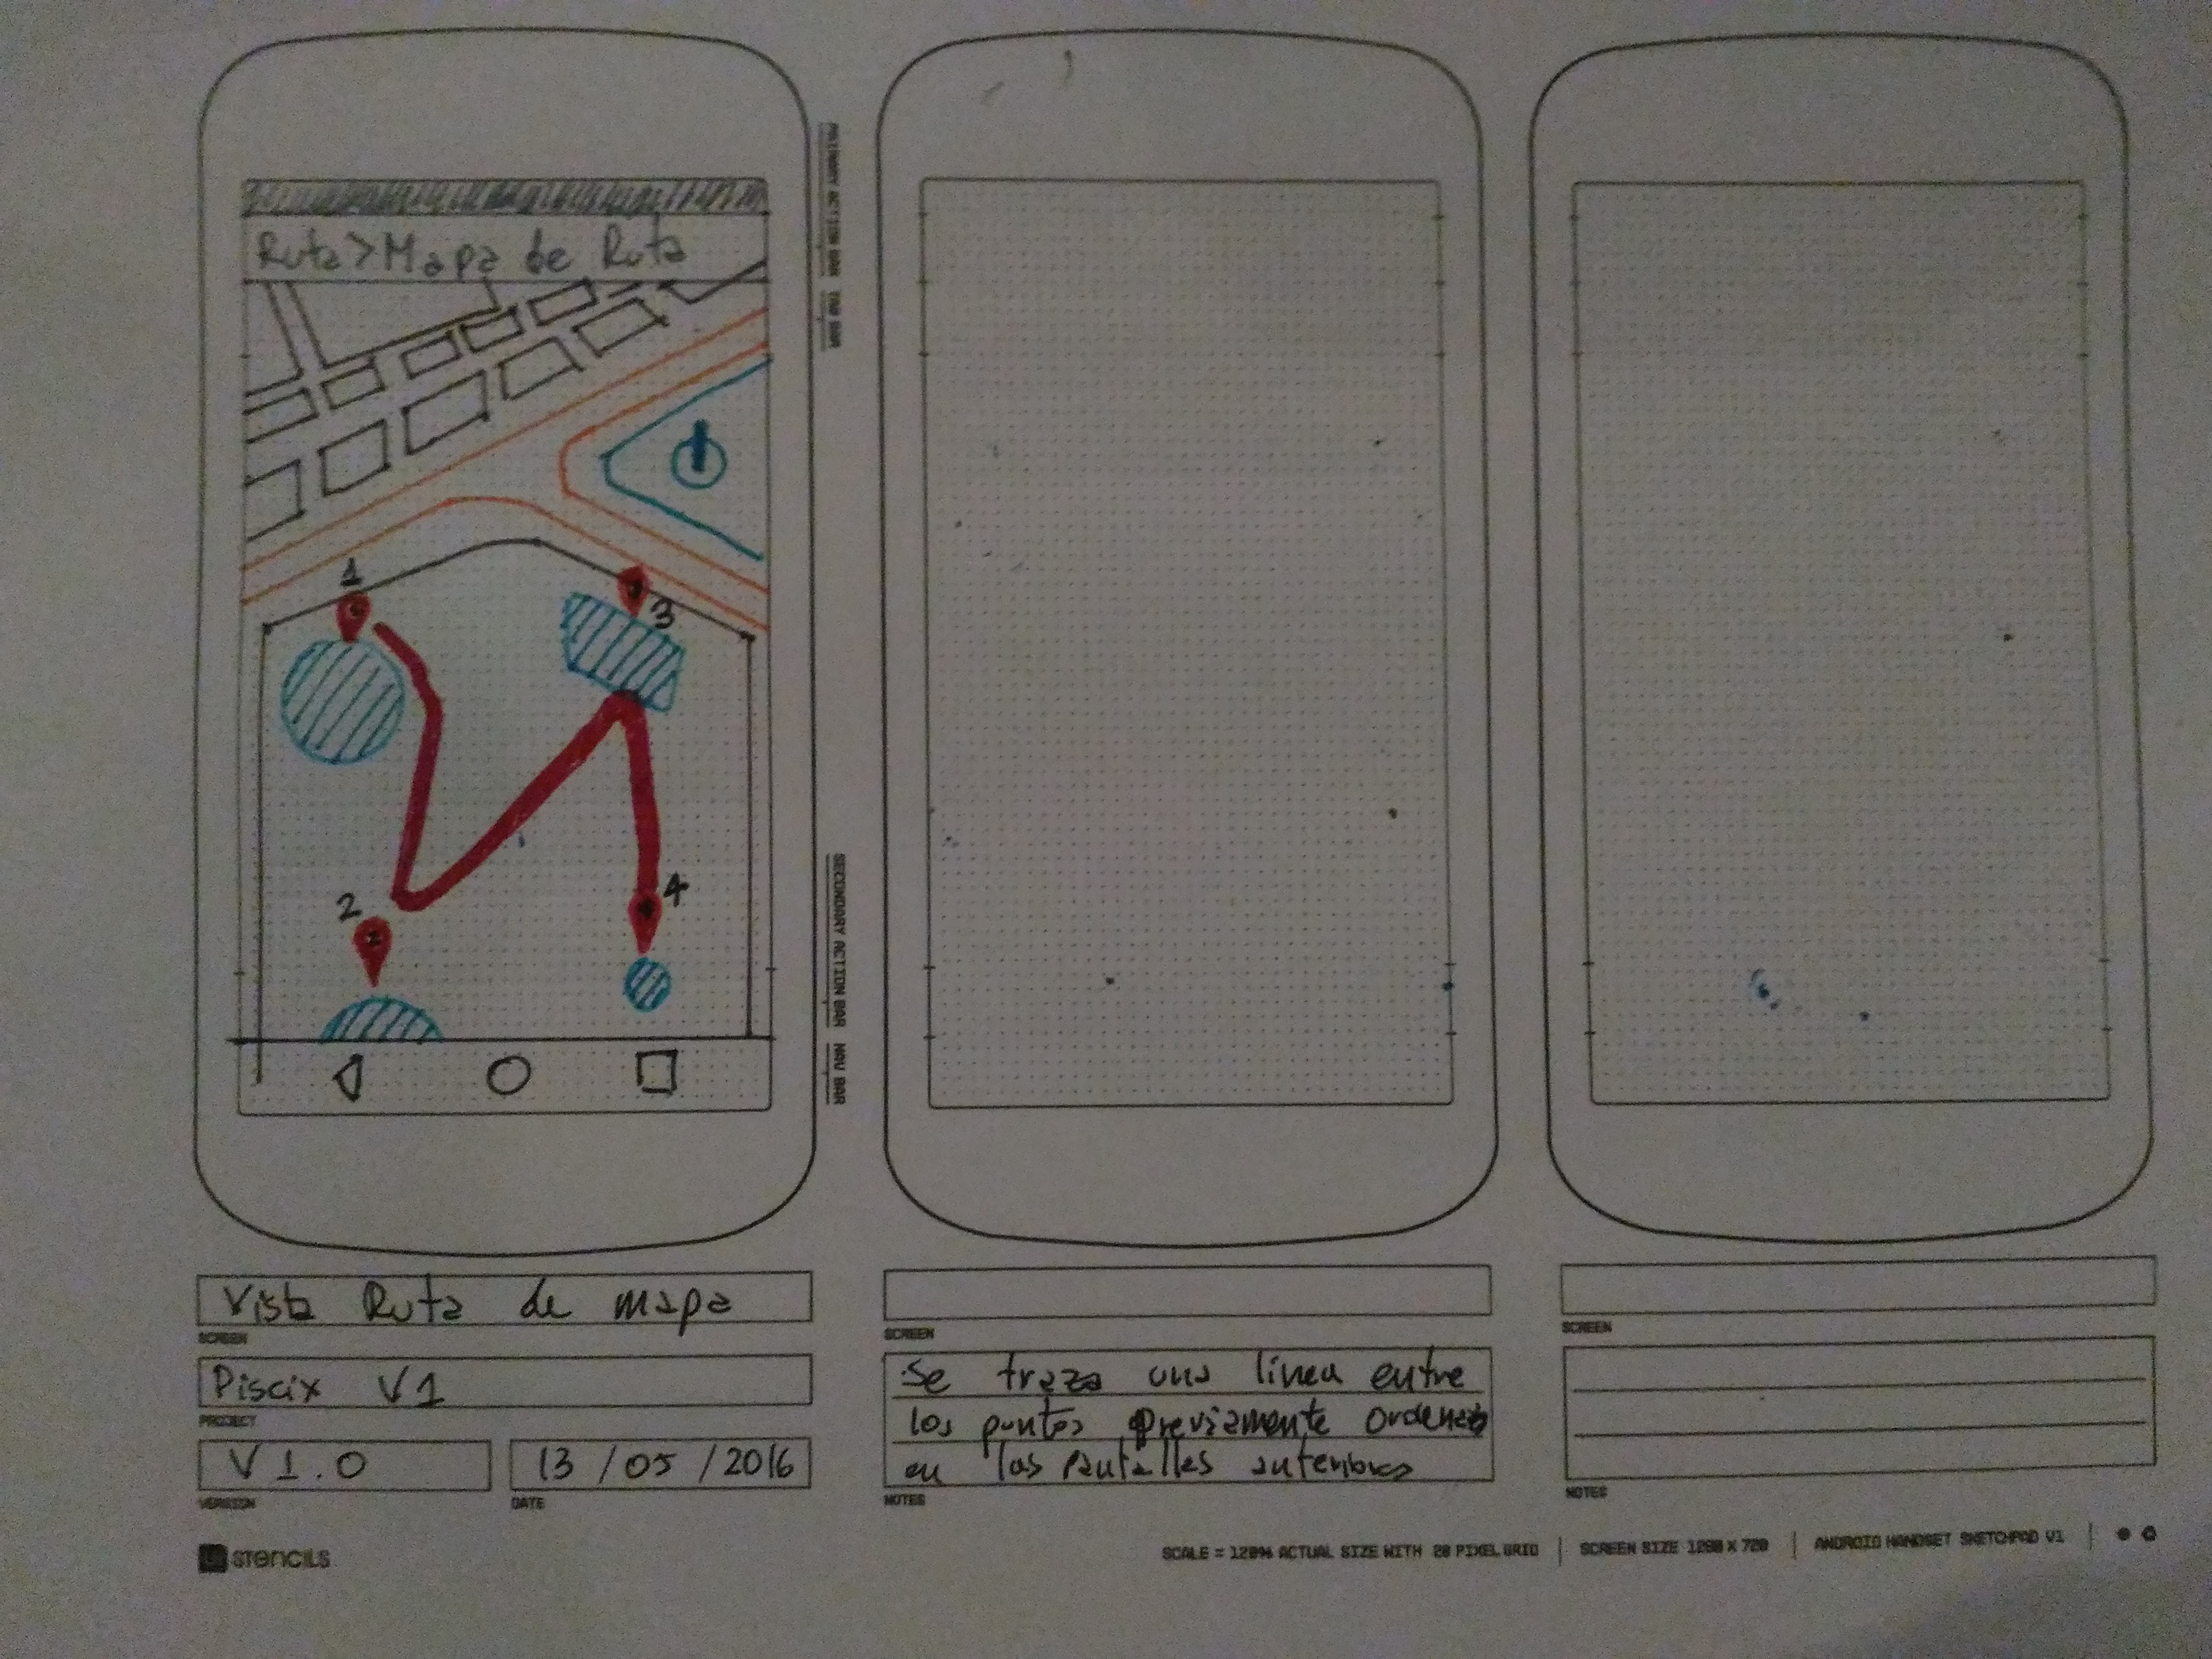 Ruta > Mapa de Ruta
1
3
2
4
PRIMARY ACTION BAR TOP BAR
SECONDARY ACTION BAR NAV BAR
Vista Ruta de mapa
SCREEN
Piscix V1
PROJECT
V 1.0
VERSION
13 / 05 / 2016
DATE
SCREEN
Se traza una línea entre
los puntos previamente ordenados
en las pantallas anteriores
NOTES
SCREEN
NOTES
UI STENCILS
SCALE = 120% ACTUAL SIZE WITH 20 PIXEL GRID | SCREEN SIZE 1280 X 720 | ANDROID HANDSET SKETCHPAD V1